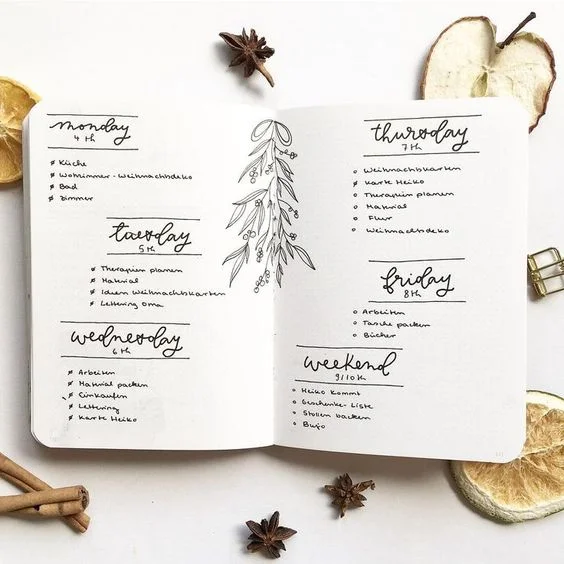 monday
4th
Küche
Wohnzimmer - Weihnachtsdeko
Bad
Zimmer
tuesday
5th
Therapien planen
Material
Ideen Weihnachtskarten
Lettering Oma
wednesday
6th
Arbeiten
Material packen
Einkaufen
Lettering
Karte Heiko
thursday
7th
Weihnachtskarten
Karte Heiko
Therapien planen
Material
Flur
Weihnachtsdeko
friday
8th
Arbeiten
Tasche packen
Bücher
weekend
9/10th
Heiko kommt
Geschenke-Liste
Stollen backen
Bujo